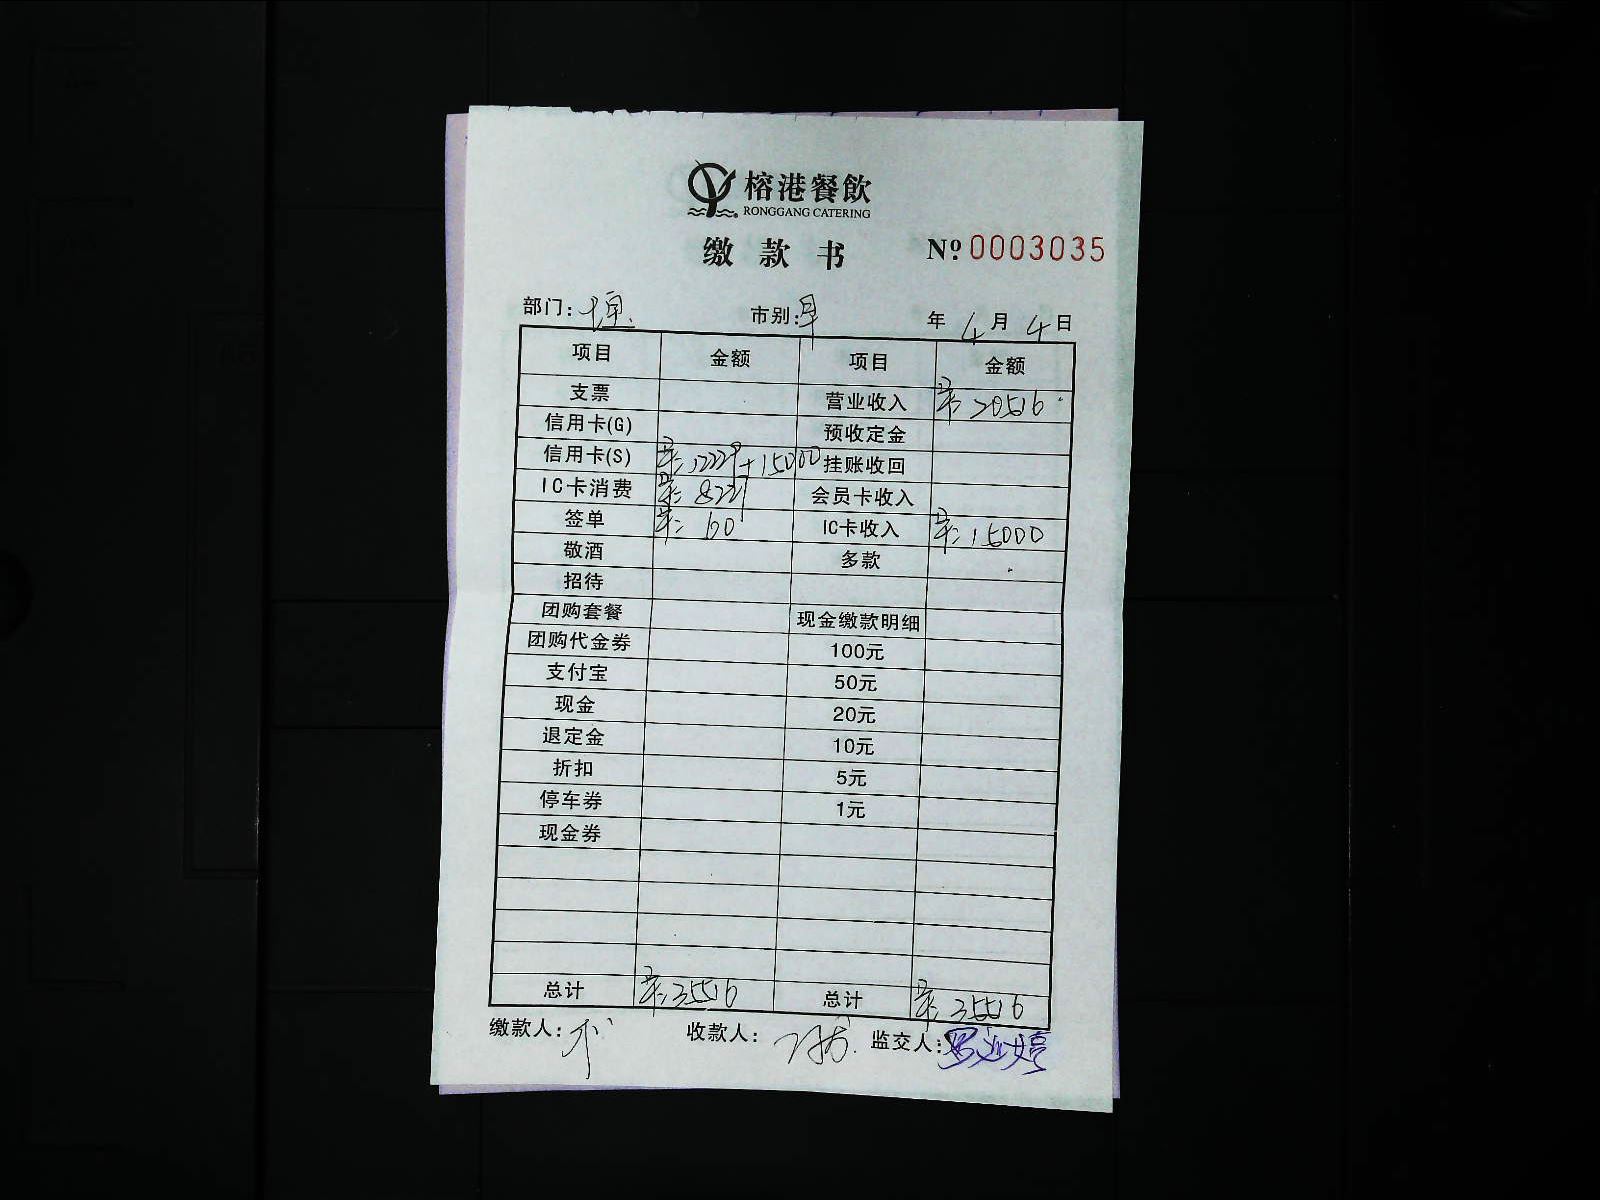 榕港餐飲
RONGGANG CATERING
缴款书 №0003035
部门: 市别:早 年 4月 4日
项目 金额 项目 金额
支票 营业收入 20516
信用卡(G) 预收定金
信用卡(S) 12229+15000 挂账收回
IC卡消费 8227 会员卡收入
签单 60 IC卡收入 15000
敬酒 多款
招待
团购套餐 现金缴款明细
团购代金券 100元
支付宝 50元
现金 20元
退定金 10元
折扣 5元
停车券 1元
现金券
总计 35516 总计 35516
缴款人: 收款人: 监交人: